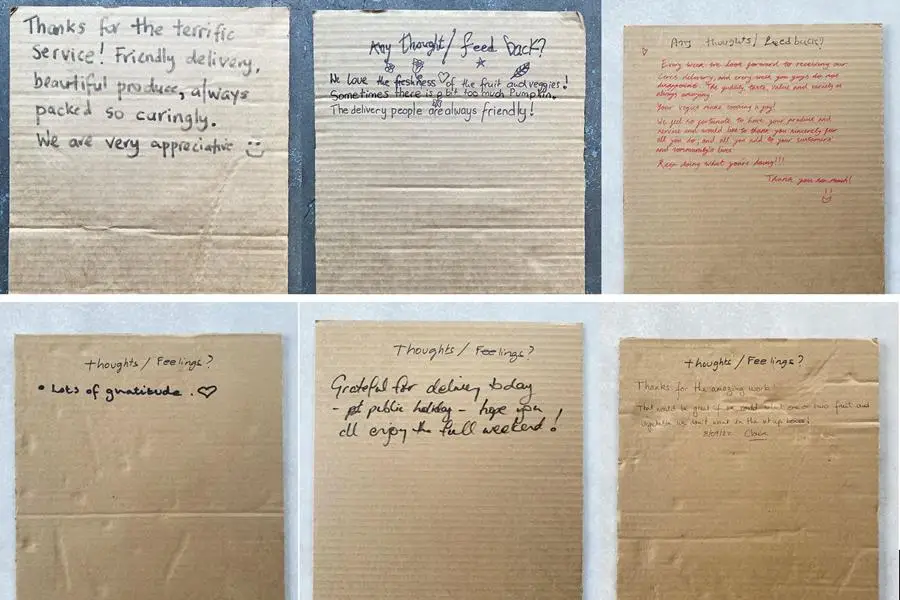 Thanks for the terrific
Service! Friendly delivery,
beautiful produce, always
packed so caringly.
We are very appreciative
Any thought/ feed back?
We love the freshness of the fruit and veggies!
Sometimes there is a bit too much Pumpkin.
The delivery people are always friendly!
Any thoughts/ feedback?
Every week we look forward to receiving our
Ceres delivery, and every week you guys do not
disappoint. The quality, taste, value and variety is
always amazing!
Your vegies make cooking a joy!
We feel so fortunate to have your produce and
service and would like to thank you sincerely for
all you do, and all you add to your customers'
and community's lives
Keep doing what you're doing!!!
Thank you so much!
Thoughts/ Feelings?
• Lots of gratitude.
Thoughts/ Feelings?
Grateful for delivery today
- pt public holiday - hope you
all enjoy the full weekend!
Thoughts/ Feelings?
Thanks for the amazing work
That would be great if we could one or two fruit and
vegetable we don't want in the set up boxes!